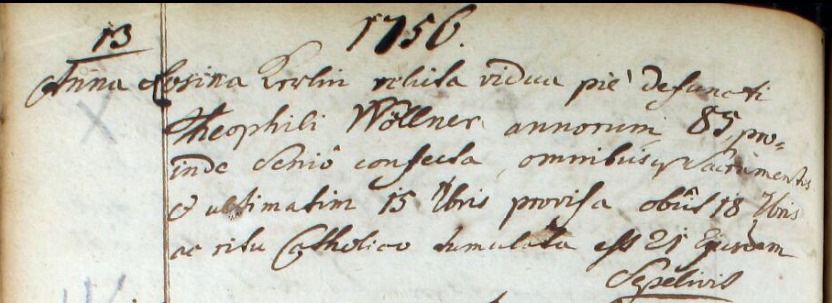 1756.
13
Anna Rosina Kerlin relicta vidua piè defuncti
Theophili Wöllner annorum 85, pro=
inde Seniô confecta, omnibusq Sacramentis
& ultimatim 15 Xbris provisa obiit 18 Xbris
ac ritu Catholico tumulata est 21 Ejusdem
Sepelivit